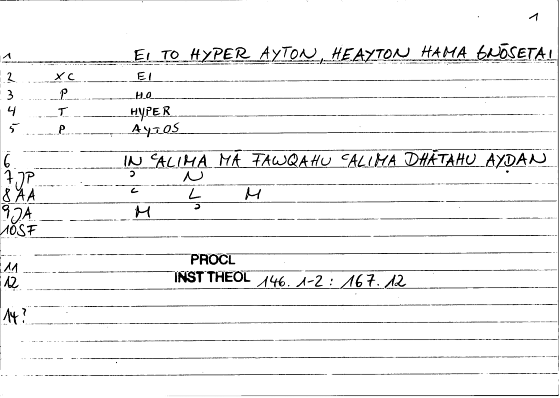 1
1 EI TO HYPER AYTON, HEAYTON HAMA GNŌSETAI
2 XC EI
3 P HO
4 T HYPER
5 P AYTOS
6 IN ʿALIMA MĀ FAWQAHU ʿALIMA DHĀTAHU AYḌAN
7 JP ʾ N
8 AA ʿ L M
9 JA M ʾ
10 SF
11 PROCL
12 INST THEOL 146.1-2 : 167.12
14?